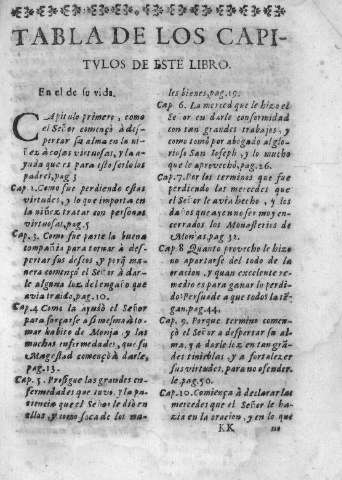 TABLA DE LOS CAPI-
TVLOS DE ESTE LIBRO.
En el de su vida.
CApitulo primero, como
el Señor començò à des-
pertar su alma en la ni-
ñez à cosas virtuosas, y la a-
yuda que es para esto ser lo los
padres, pag 3
Cap. 2. Como fue perdiendo estas
virtudes, y lo que importa en
la niñez tratar con personas
virtuosas, pag 5
Cap. 3. Como fue parte la buena
compañia para tornar à des-
pertar sus deseos, y porq̃ ma-
nera començó el Señor à dar-
le alguna luz del engaño que
avia traido, pag. 10.
Cap. 4 Como la ayudò el Señor
para forçarse a si mesma à to-
mar habito de Monja, y las
muchas enfermedades, que su
Magestad començò à darle,
pag. 13.
Cap. 5. Prosigue las grandes en-
fermedades que tuvo, y la pa-
ciencia que el Señor le diò en
ellas, y como saca de los ma-
les bienes, pag. 19.
Cap. 6. La merced que le hizo el
Señor en darle conformidad
con tan grandes trabajos, y
como tomò por abogado al glo-
rioso San Ioseph, y lo mucho
que le aprovechò, pag. 26.
Cap. 7. Por los terminos que fue
perdiendo las mercedes que
el Señor le avia hecho, y los
daños que ay en no ser muy en-
cerrados los Monasterios de
Monjas, pag 32.
Cap. 8 Quanto provecho le hizo
no apartarse del todo de la
oracion, y quan excelente re-
medio es para ganar lo perdi-
do Persuade a que todos la tē-
gan, pag. 44.
Cap. 9. Porque termino comen-
çò el Señor a despertar su al-
ma, y a darle luz en tan gran-
des tinieblas, y a fortalezer
sus virtudes, para no ofender-
le, pag. 50.
Cap. 10. Comiença à declarar las
mercedes que el Señor le ha-
zia en la oracion, y en lo que
KK